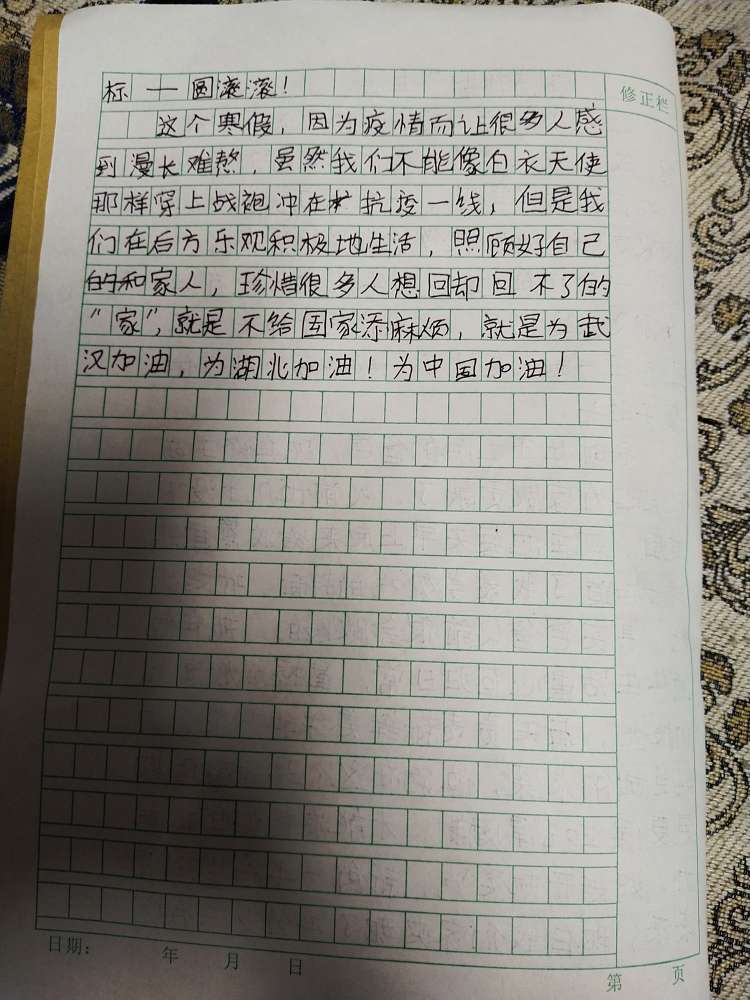 标一圆滚滚！
修正栏
这个寒假，因为疫情而让很多人感
到漫长难熬，虽然我们不能像白衣天使
那样穿上战袍冲在抗疫一线，但是我
们在后方乐观积极地生活，照顾好自己
的和家人，珍惜很多人想回却回不了的
“家”，就是不给国家添麻烦，就是为武
汉加油，为湖北加油！为中国加油！
日期： 年 月 日
第 页